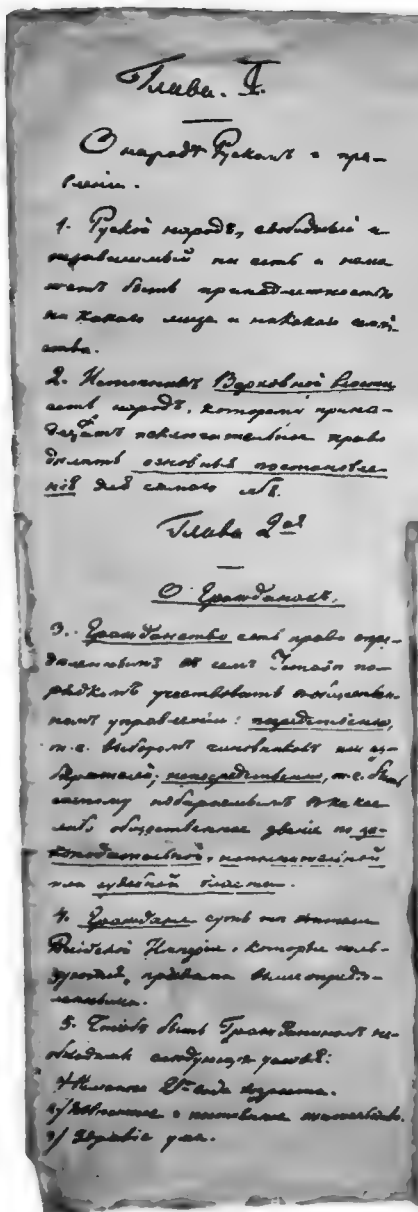 Глава. I.
О народѣ Рускомъ и пра-
вленіи.
1. Руской народъ, свободный и
независимый не есть и неmo-
жетъ быть принадлежностью
ни какаго лица и никакаго семей-
ства.
2. Источникъ Верховной власти
есть народъ, которому прина-
длежитъ исключительное право
дѣлать основныя постановле-
нія для самаго себя.
Глава 2ая
О Гражданахъ.
3. Гражданство есть право опре-
дѣленнымъ въ семъ Уставѣ по-
рядкомъ участвовать въ обществен-
номъ управленіи: посредственно,
т.е. выборомъ чиновниковъ или из-
бирателей; непосредственно, т.е. быть
самому избираемымъ въ какое
либо общественное званіе по за-
конодательной, исполнительной
или судебной власти.
4. Граждане суть тѣ жители
Россійской Имперіи, которые поль-
зуются правами выше опредѣ-
ленными.
5. Чтобъ быть Гражданиномъ не-
обходимы слѣдующія условія:
1/ Не менѣе 21го года возраста.
2/ Извѣстное и постоянное жительство.
3/ Здравіе ума.